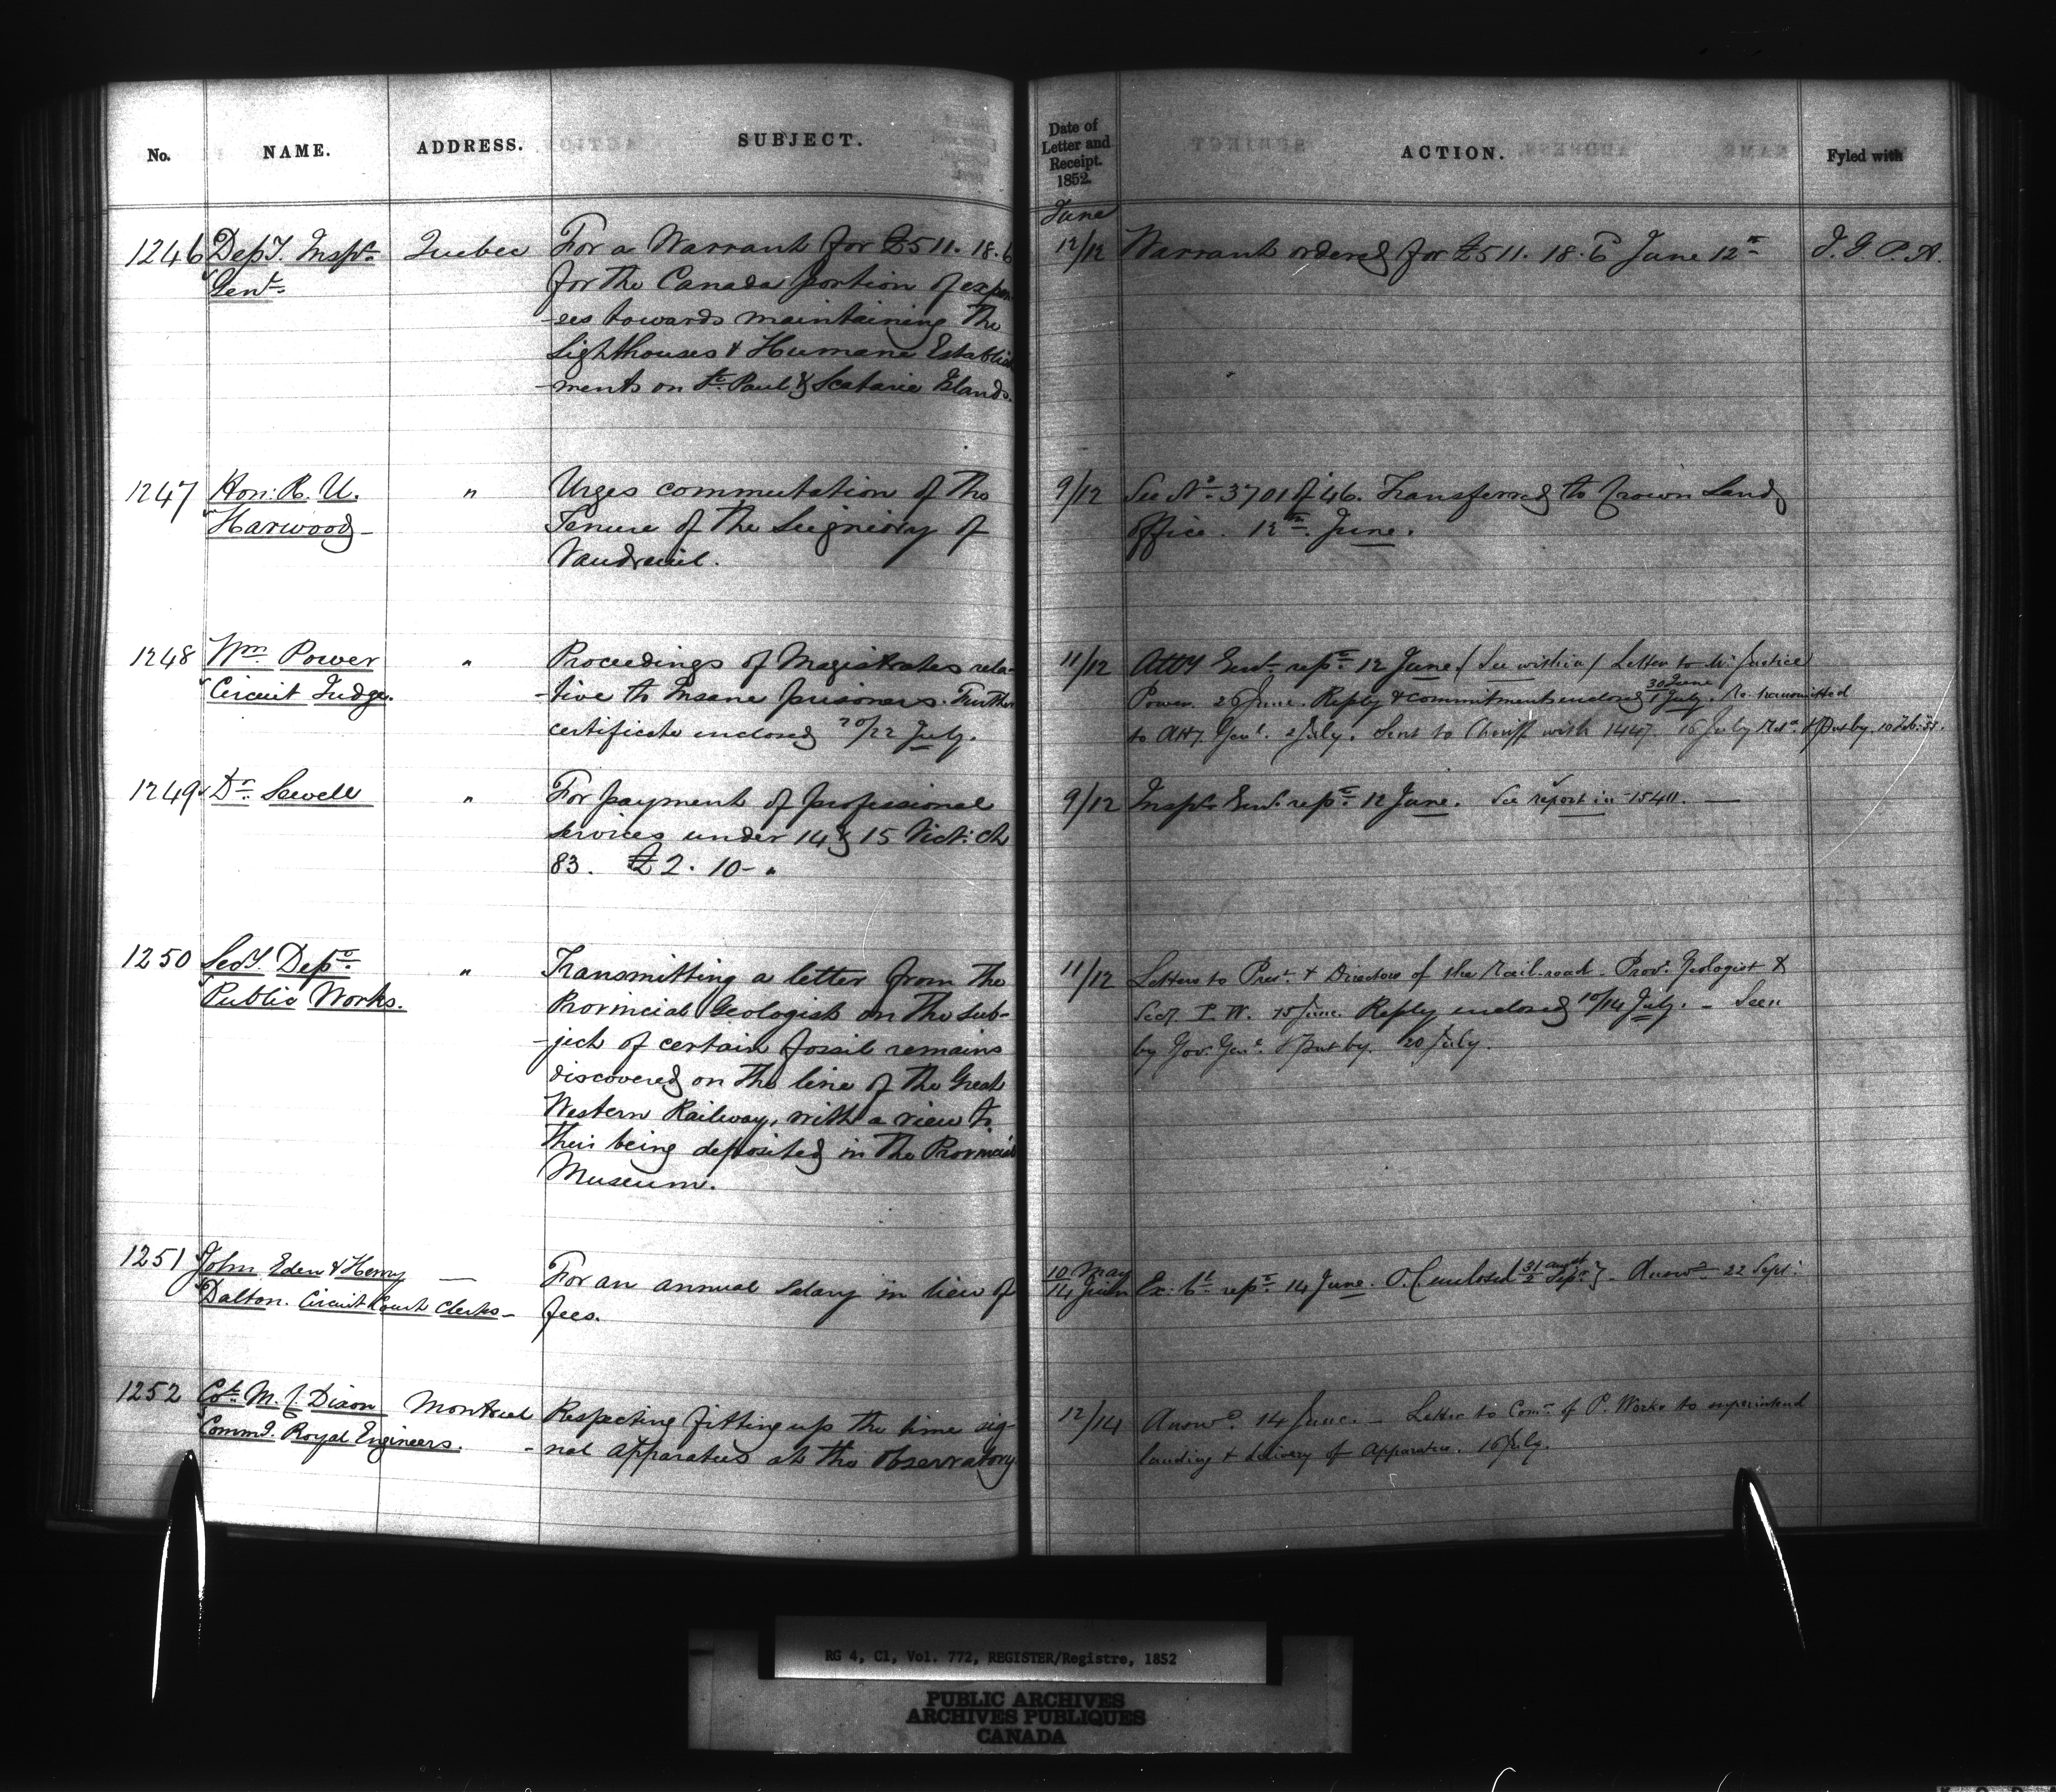 No. NAME. ADDRESS. SUBJECT.
1246 Depy. Inspr. Quebec For a Warrant for £511. 18. 6
Genl. for the Canada portion of expen
-ses towards maintaining the
Lighthouses & Humane Establish
-ments on St. Paul & Scatarie Islands.
1247 Hon: R. U. " Urges commutation of the
Harwood - Tenure of the Seigniory of
Vaudreuil.
1248 Wm. Power " Proceedings of Magistrates rela-
Circuit Judge. -tive to insane prisoners. Further
certificate enclosed 20/22 July.
1249 Dr. Sewell " For payment of professional
services under 14 & 15 Vict: Ch
83. £2. 10- "
1250 Secy. Dept. " Transmitting a letter from the
Public Works. Provincial Geologist on the sub-
-ject of certain fossil remains
discovered on the line of the Great
Western Railway, with a view to
their being deposited in the Provincial
Museum.
1251 John Eden & Henry — For an annual salary in lieu of
Dalton. Circuit Court Clerks - fees.
1252 Col. M. C. Dixon Montreal Respecting fitting up the time sig-
Commg. Royal Engineers. -nal apparatus at the Observatory
Date of
Letter and
Receipt.
1852. ACTION. Fyled with
June
12/12 Warrant ordered for £511. 18. 6 June 12th J. G. P. A.
9/12 See No. 3701 of 46. Transferred to Crown Land
office. 12th. June.
11/12 Atty Genl. repd. 12 June. (See within) Letter to Mr. Justice
Power. 26 June. Reply & commitments enclosed 30 June/1 July. Re. transmitted
to Atty. Genl. 2 July. Sent to Sheriff with 1447. 16 July Retd. & Put by. 10 Feb:
9/12 Inspr. Genl. repd. 12 June. See report in 1540. —
11/12 Letters to Prest. & Directors of the Rail-road - Prov. Geologist &
Secy. P. W. 15 June. Reply enclosed 10/14 July. - Seen
by Gov. Genl. & Put by. 20 July.
10 May
14 June Ex. Cl. repd. 14 June. O. C. enclosed 31 augst/2 Sepr. - Answd. 22 Sept.
12/14 Answd. 14 June. - Letter to Comr. of P. Works to superintend
landing & delivery of apparatus. 16 July.
RG 4, C1, Vol. 772, REGISTER/Registre, 1852
PUBLIC ARCHIVES
ARCHIVES PUBLIQUES
CANADA